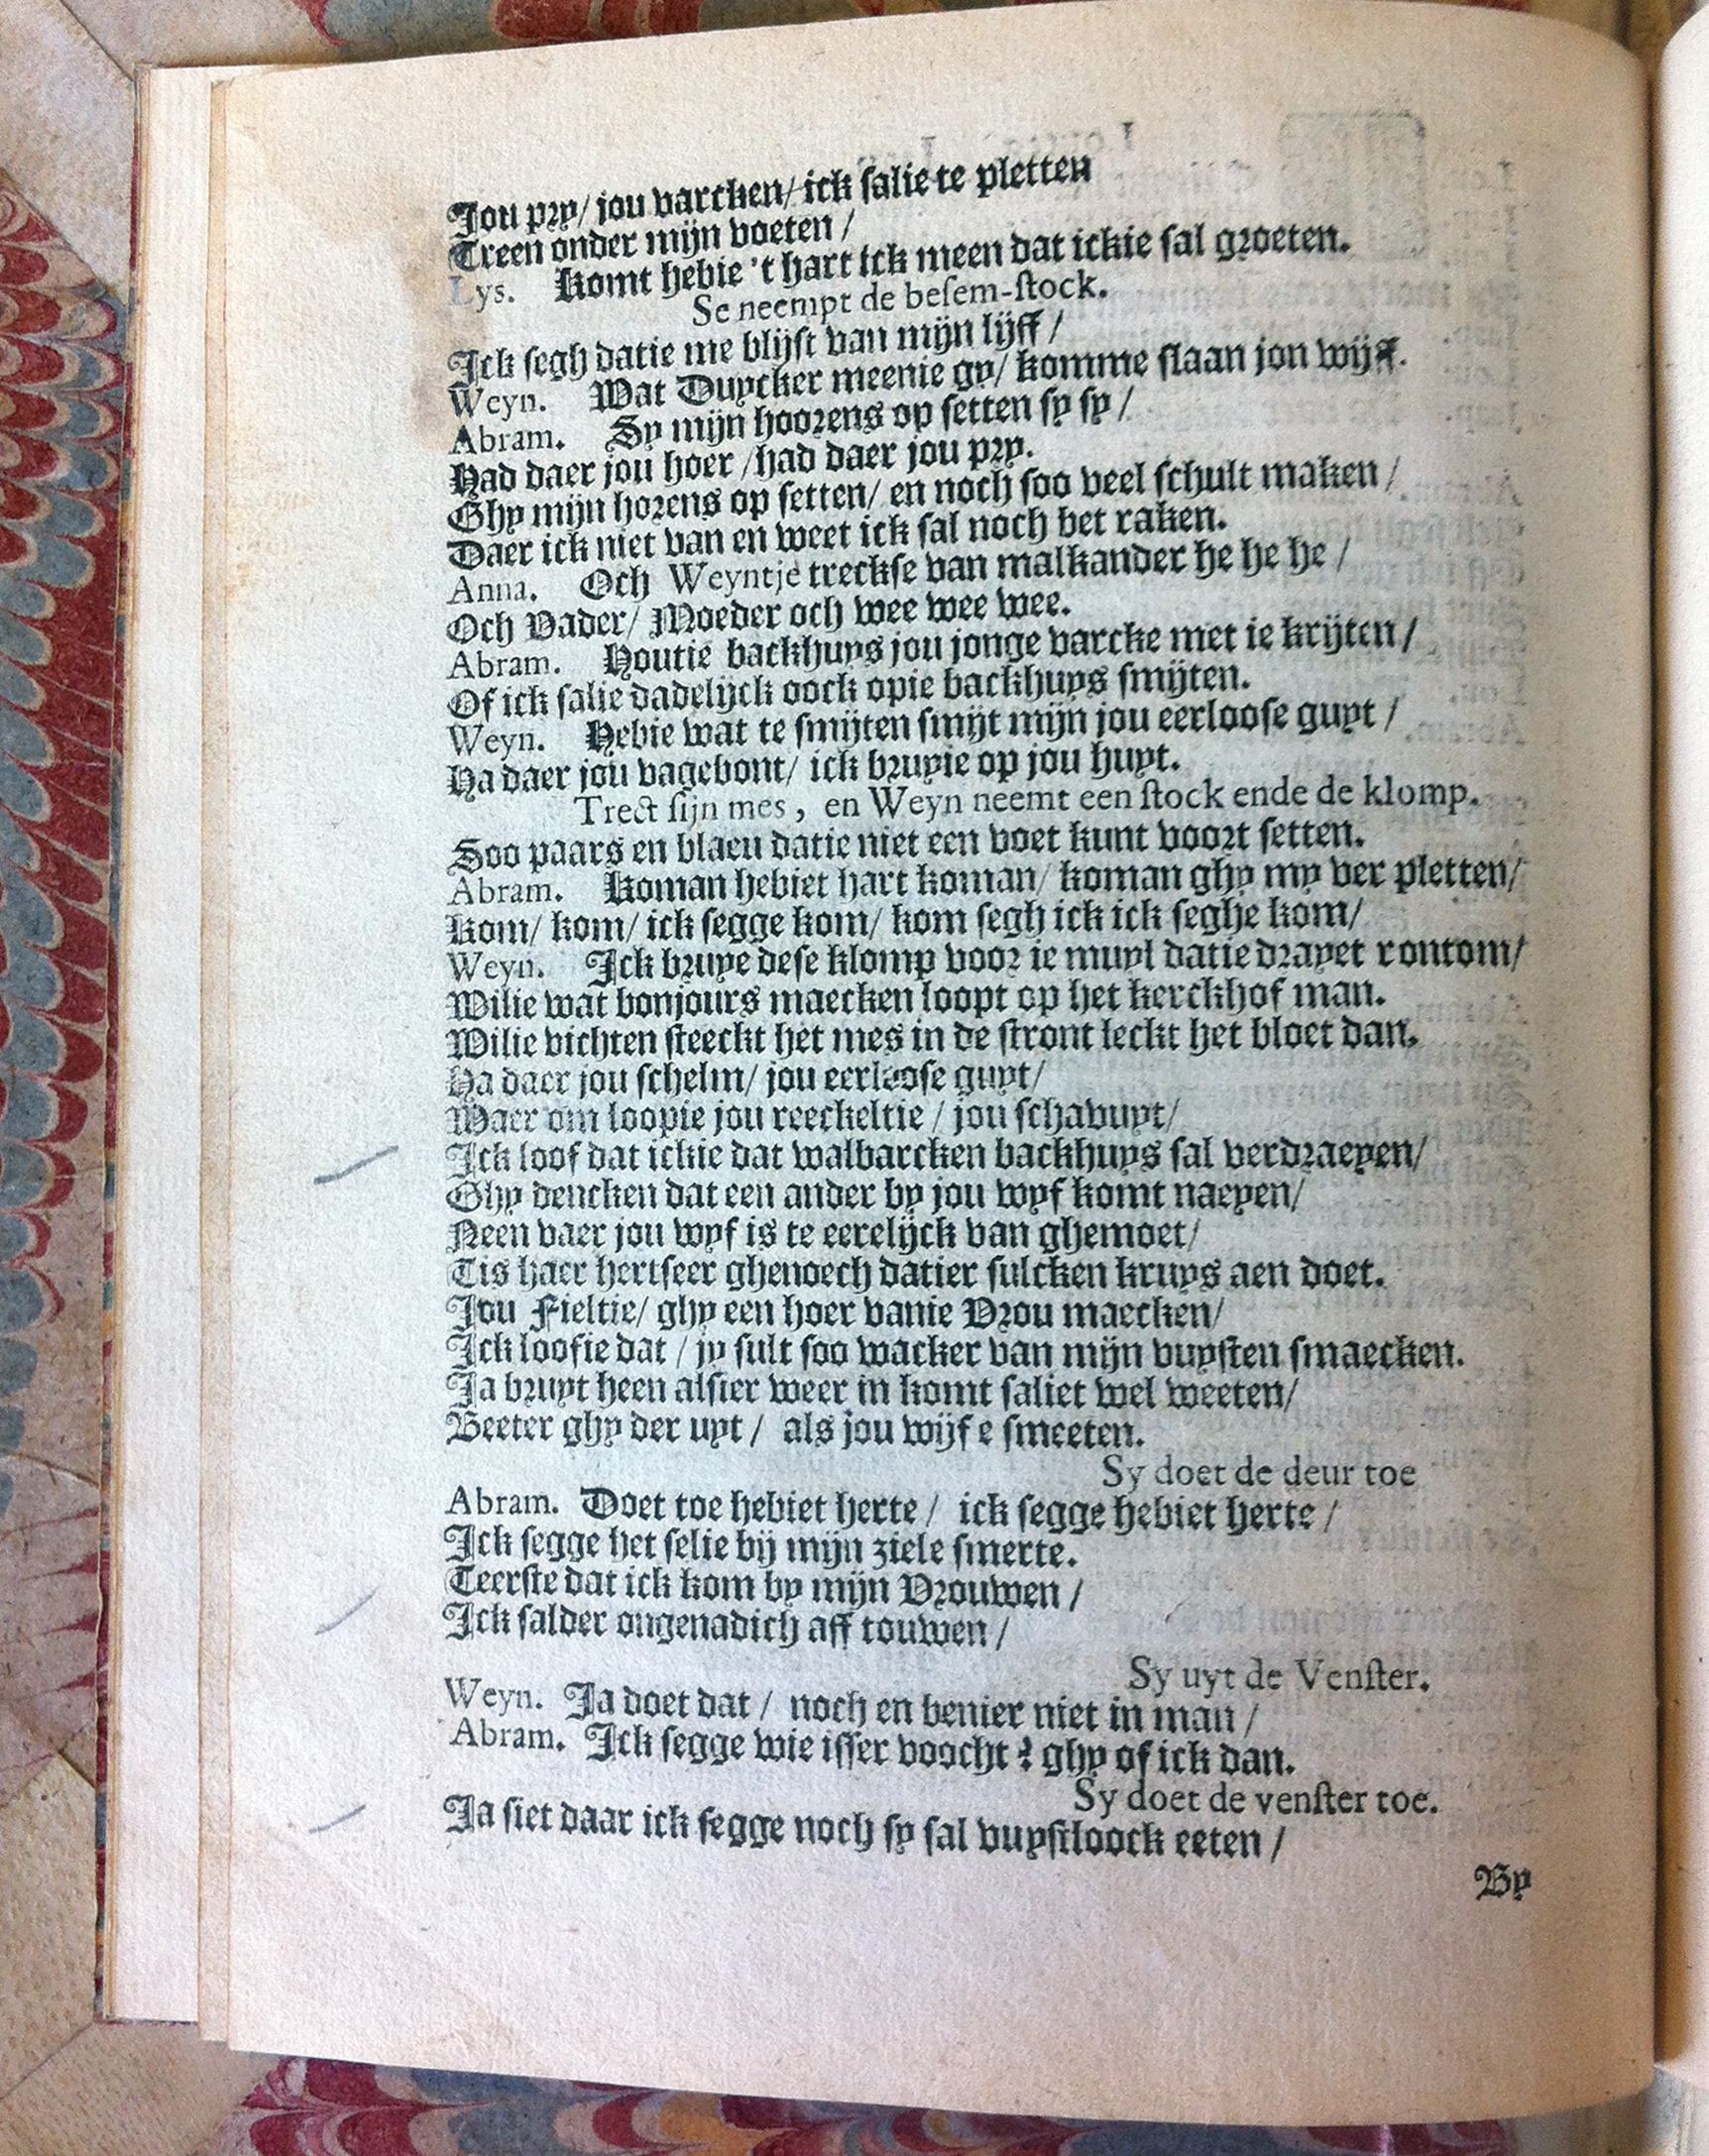 Jou pry/ jou varcken/ ick salie te pletten
Treen onder mijn voeten /
Lys. Komt hebie 't hart ick meen dat ickie sal groeten.
Se neempt de besem-stock.
Ick segh datie me blijft van mijn lijff /
Weyn. Wat Duycker meenie gy/ komme slaan jon wijff.
Abram. Sy mijn hoorens op setten sy sy /
Had daer jou hoer /had daer jou pry.
Ghy mijn horens op setten/ en noch soo veel schult maken /
Daer ick niet van en weet ick sal noch bet raken.
Anna. Och Weyntje treckse van malkander he he he /
Och Vader/ Moeder och wee wee wee.
Abram. Houtie backhuys jou jonge varcke met ie krijten /
Of ick salie dadelijck oock opie backhuys smijten.
Weyn. Hebie wat te smijten smijt mijn jou eerloose guyt /
Ha daer jou vagebont/ ick bruyie op jou huyt.
Trect sijn mes, en Weyn neemt een stock ende de klomp.
Soo paars en blaeu datie niet een voet kunt voort setten.
Abram. Koman hebiet hart koman/ koman ghy my ver pletten/
Kom/ kom/ ick segge kom/ kom segh ick ick seghe kom/
Weyn. Ick bruye dese klomp voor ie muyl datie drayet rontom/
Wilie wat bonjours maecken loopt op het kerckhof man.
Wilie vichten steeckt het mes in de stront leckt het bloet dan.
Ha daer jou schelm/ jou eerloose guyt/
Waer om loopie jou reeckeltie / jou schavuyt/
Ick loof dat ickie dat walvarcken backhuys sal verdraeyen/
Ghy dencken dat een ander by jou wyf komt naeyen/
Neen vaer jou wyf is te eerelijck van ghemoet/
Tis haer hertseer ghenoech datier sulcken kruys aen doet.
Jou Fieltie/ ghy een hoer vanie Vrou maecken/
Ick loofie dat / jy sult soo wacker van mijn vuysten smaecken.
Ja bruyt heen alsier weer in komt saliet wel weeten/
Beeter ghy der uyt / als jou wijf e smeeten.
Sy doet de deur toe
Abram. Doet toe hebiet herte / ick segge hebiet herte /
Ick segge het selie bij mijn ziele smerte.
Teerste dat ick kom by mijn Vrouwen /
Ick salder ongenadich aff touwen /
Sy uyt de Venster.
Weyn. Ja doet dat / noch en benier niet in man /
Abram. Ick segge wie isser voocht? ghy of ick dan.
Sy doet de venster toe.
Ja siet daar ick segge noch sy sal vuystloock eeten /
By